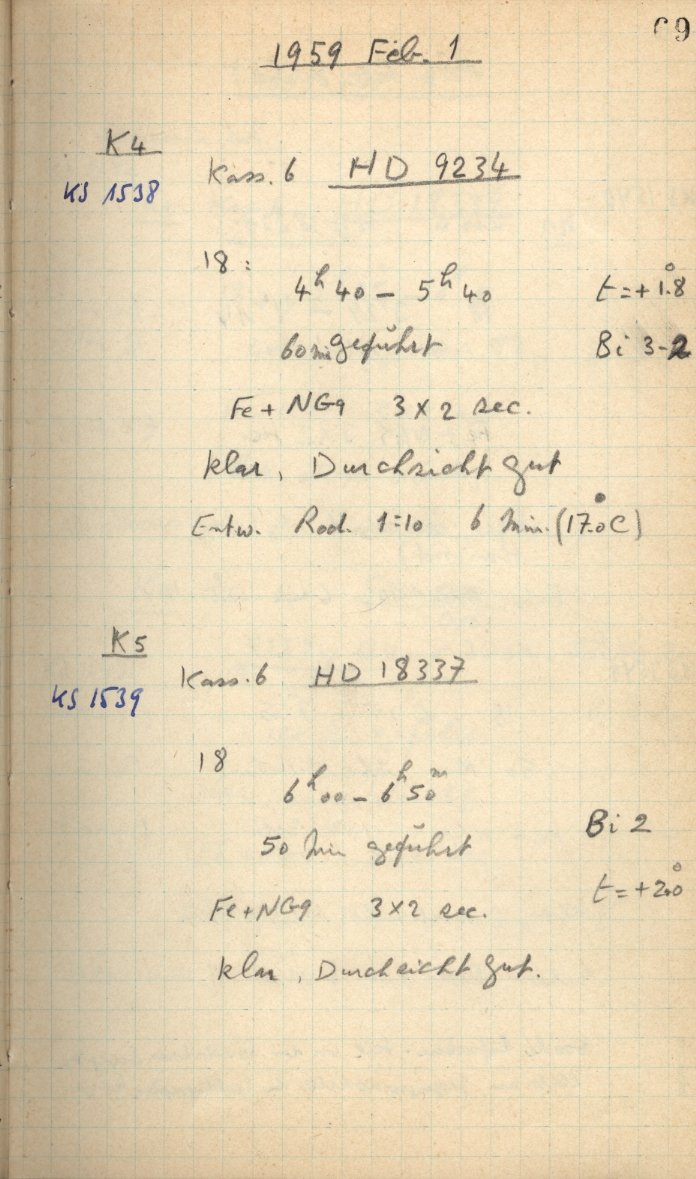 69
1959 Feb. 1
K4
KS 1538
Kass. 6 HD 9234
18:
4ʰ40 – 5ʰ40 t=+1.8°
60min geführt Bi 3-2
Fe + NG9 3 x 2 sec.
klar, Durchsicht gut
Entw. Rod. 1:10 6 Min. (17.°0C)
K5
KS 1539
Kass. 6 HD 18337
18
6ʰ00 – 6ʰ50ᵐ
Bi 2
50 Min geführt
t=+2.0°
Fe+NG9 3x2 sec.
klar, Durchsicht gut.